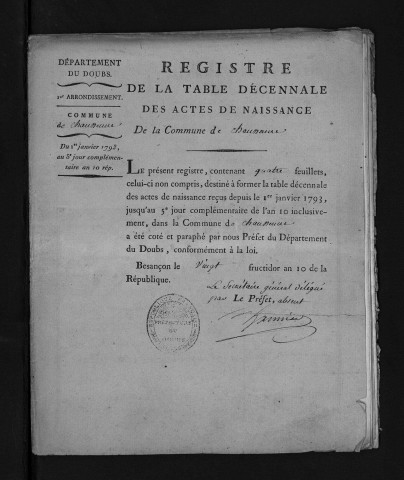 DÉPARTEMENT
DU DOUBS.
ARRONDISSEMENT.
COMMUNE
de chaunceuse
Du 1er janvier 1793,
au 5e jour complémen-
taire an 10 rép.
REGISTRE
DE LA TABLE DÉCENNALE
DES ACTES DE NAISSANCE
De la Commune de
LE présent registre, contenant quatre feuillets,
celui-ci non compris, destiné à former la table décennale
des actes de naissance reçus depuis le 1er janvier 1793,
jusqu'au 5e jour complémentaire de l'an 10 inclusive-
ment, dans la Commune de
a été coté et paraphé par nous Préfet du Département
du Doubs, conformément à la loi.
Besançon le Vingt fructidor an 10 de la
République.
Le Secrétaire général délégué
par Le Préfet, absent